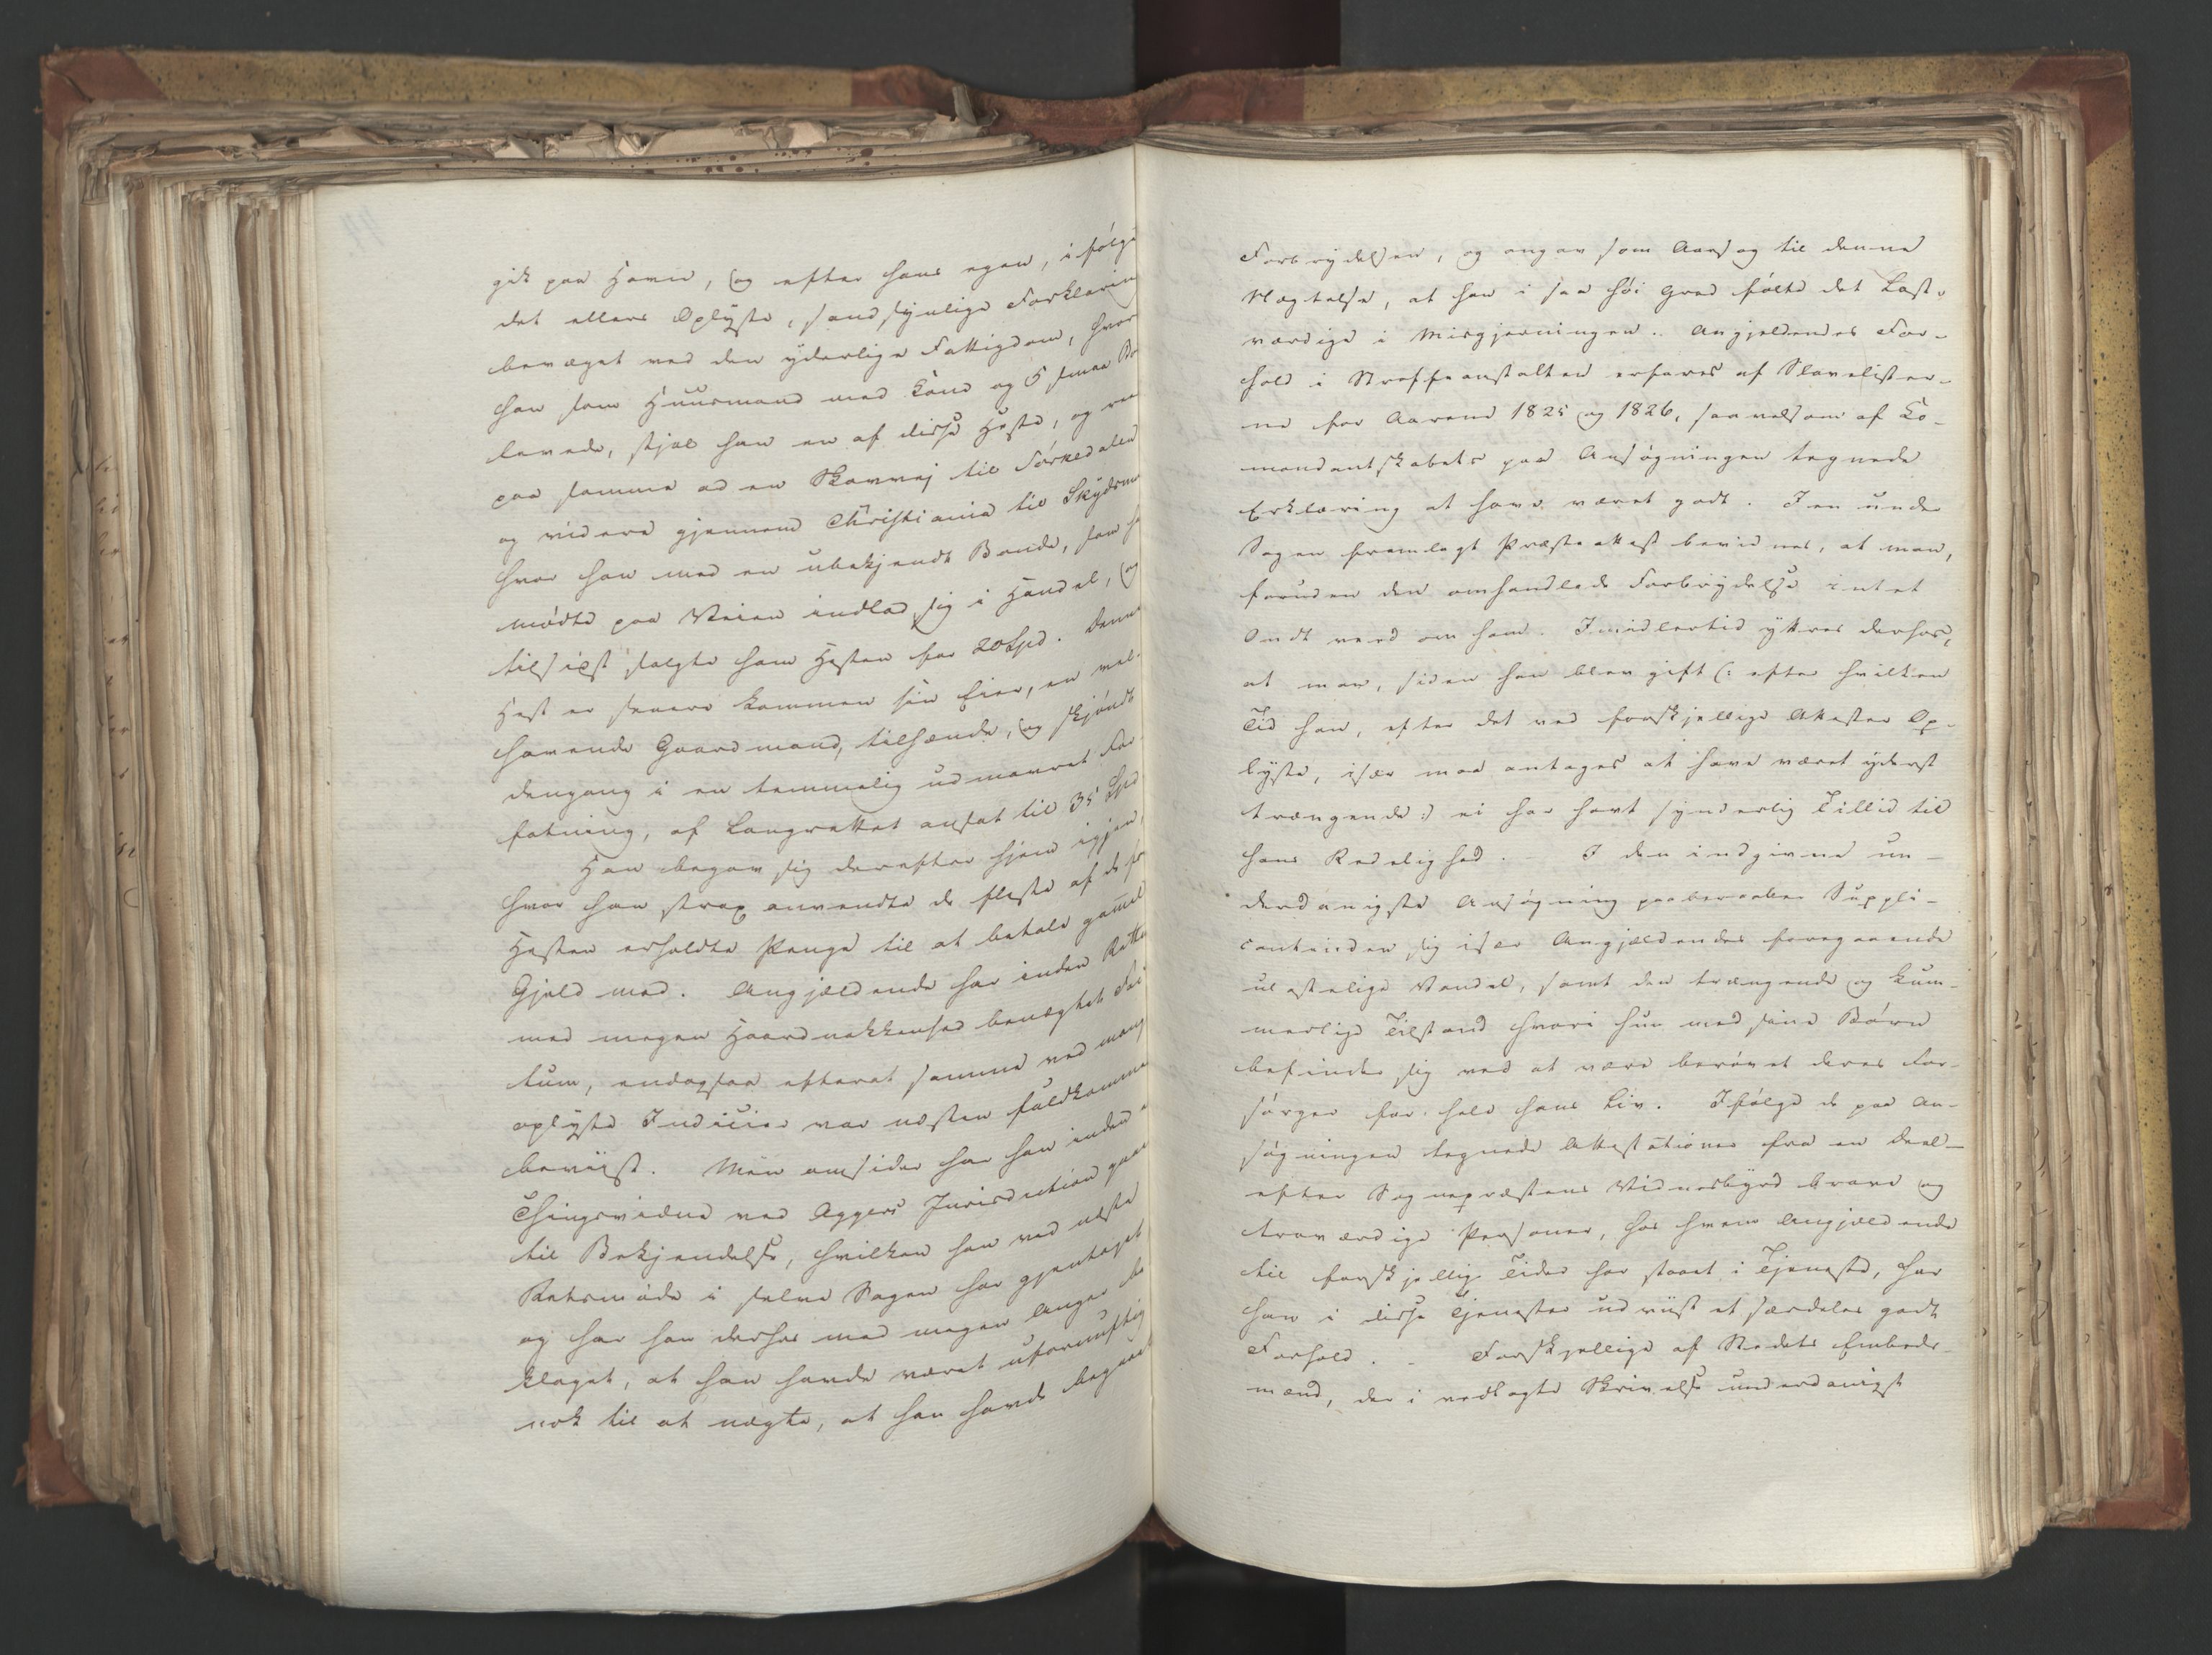 gik paa Havn, og efter hans egen, i følge
det ellers Oplyste, sandsynlige Forklaring
bevæget ved den yderlige Fattigdom, hvor
han som Huusmand med Kone og 5 smaa Bø
levede, stjal han en af disse Heste, og re
paa samme ad en Skovvej til Sørkedalen
og videre gjennem Christiania til Skydsmo
hvor han med en ubekjendt Bonde, som h
mødte paa Veien indlod sig i Handel, og
tilsidst solgte ham Hesten for 20 Spd. Denne
Hest er senere kommen sin Eier, en vel-
havende Gaardmand, tilhænde, og skjøndt
dengang i en temmelig udmavret For-
fatning, af Laugrettet ansat til 35 Spd
Han begav sig derefter hjem igjen
hvor han strax anvendte de fleste af de fo
Hesten erholdte Penge til at betale gamel
Gjeld med. Angjældende har inden Rette
med megen Haardnakkenhed benægtet Fac
tum, endogsaa efterat samme ved mang
oplyste Indicier var næsten fuldkomme
beviist. Men omsider har han inden e
Thingsvidne ved Aggers Jurisdiction gaae
til Bekjendelse, hvilken han ved næste
Retsmøde i selve Sagen har gjentaget
og har han derhos med megen Anger be
klaget, at han havde været ufornuftig
nok til at nægte, at han havde begaaet
Forbrydelsen, og angav som Aarsag til denne
Nægtelse, at han i saa høi Grad følte det Last-
værdige i Misgjerningen. Angjeldendes For-
hold i Straffeanstalten erfares af Slavelister-
ne for Aarene 1825 og 1826, saavelsom af Co-
mandantskabets paa Ansøgningen tegnede
Erklæring at have været godt. I en under
Sagen fremlagt Præsteattest bevidnes, at man,
foruden den omhandlede Forbrydelse intet
Ondt veed om ham. Imidlertid yttres derhos,
at man, siden han blev gift (: efter hvilken
Tid han, efter det ved forskjellige Attester Op-
lyste, især maa antages at have været yderst
trængende :) ei har havt synderlig Tillid til
hans Redelighed. - I den indgivne un-
derdanigste Ansøgning paaberaaber Suppli-
cantinden sig især Angjældendes foregaaende
ulastelige Vandel, samt den trængende og kum-
merlige Tilstand hvori hun med sine Børn
befinder sig ved at være berøvet deres For-
sørger for hele hans Liv. Ifølge de paa An-
søgningen tegnede Attestationer fra en Deel -
efter Sognepræstens Vidnesbyrd brave og
troværdige Personer, hos hvem Angjældende
til forskjellige Tider har staaet i Tjeneste, har
han i disse Tjenester udviist et særdeles godt
Forhold. - Forskjellige af Stedets Embeds-
mænd, der i vedlagte Skrivelse underdanigst